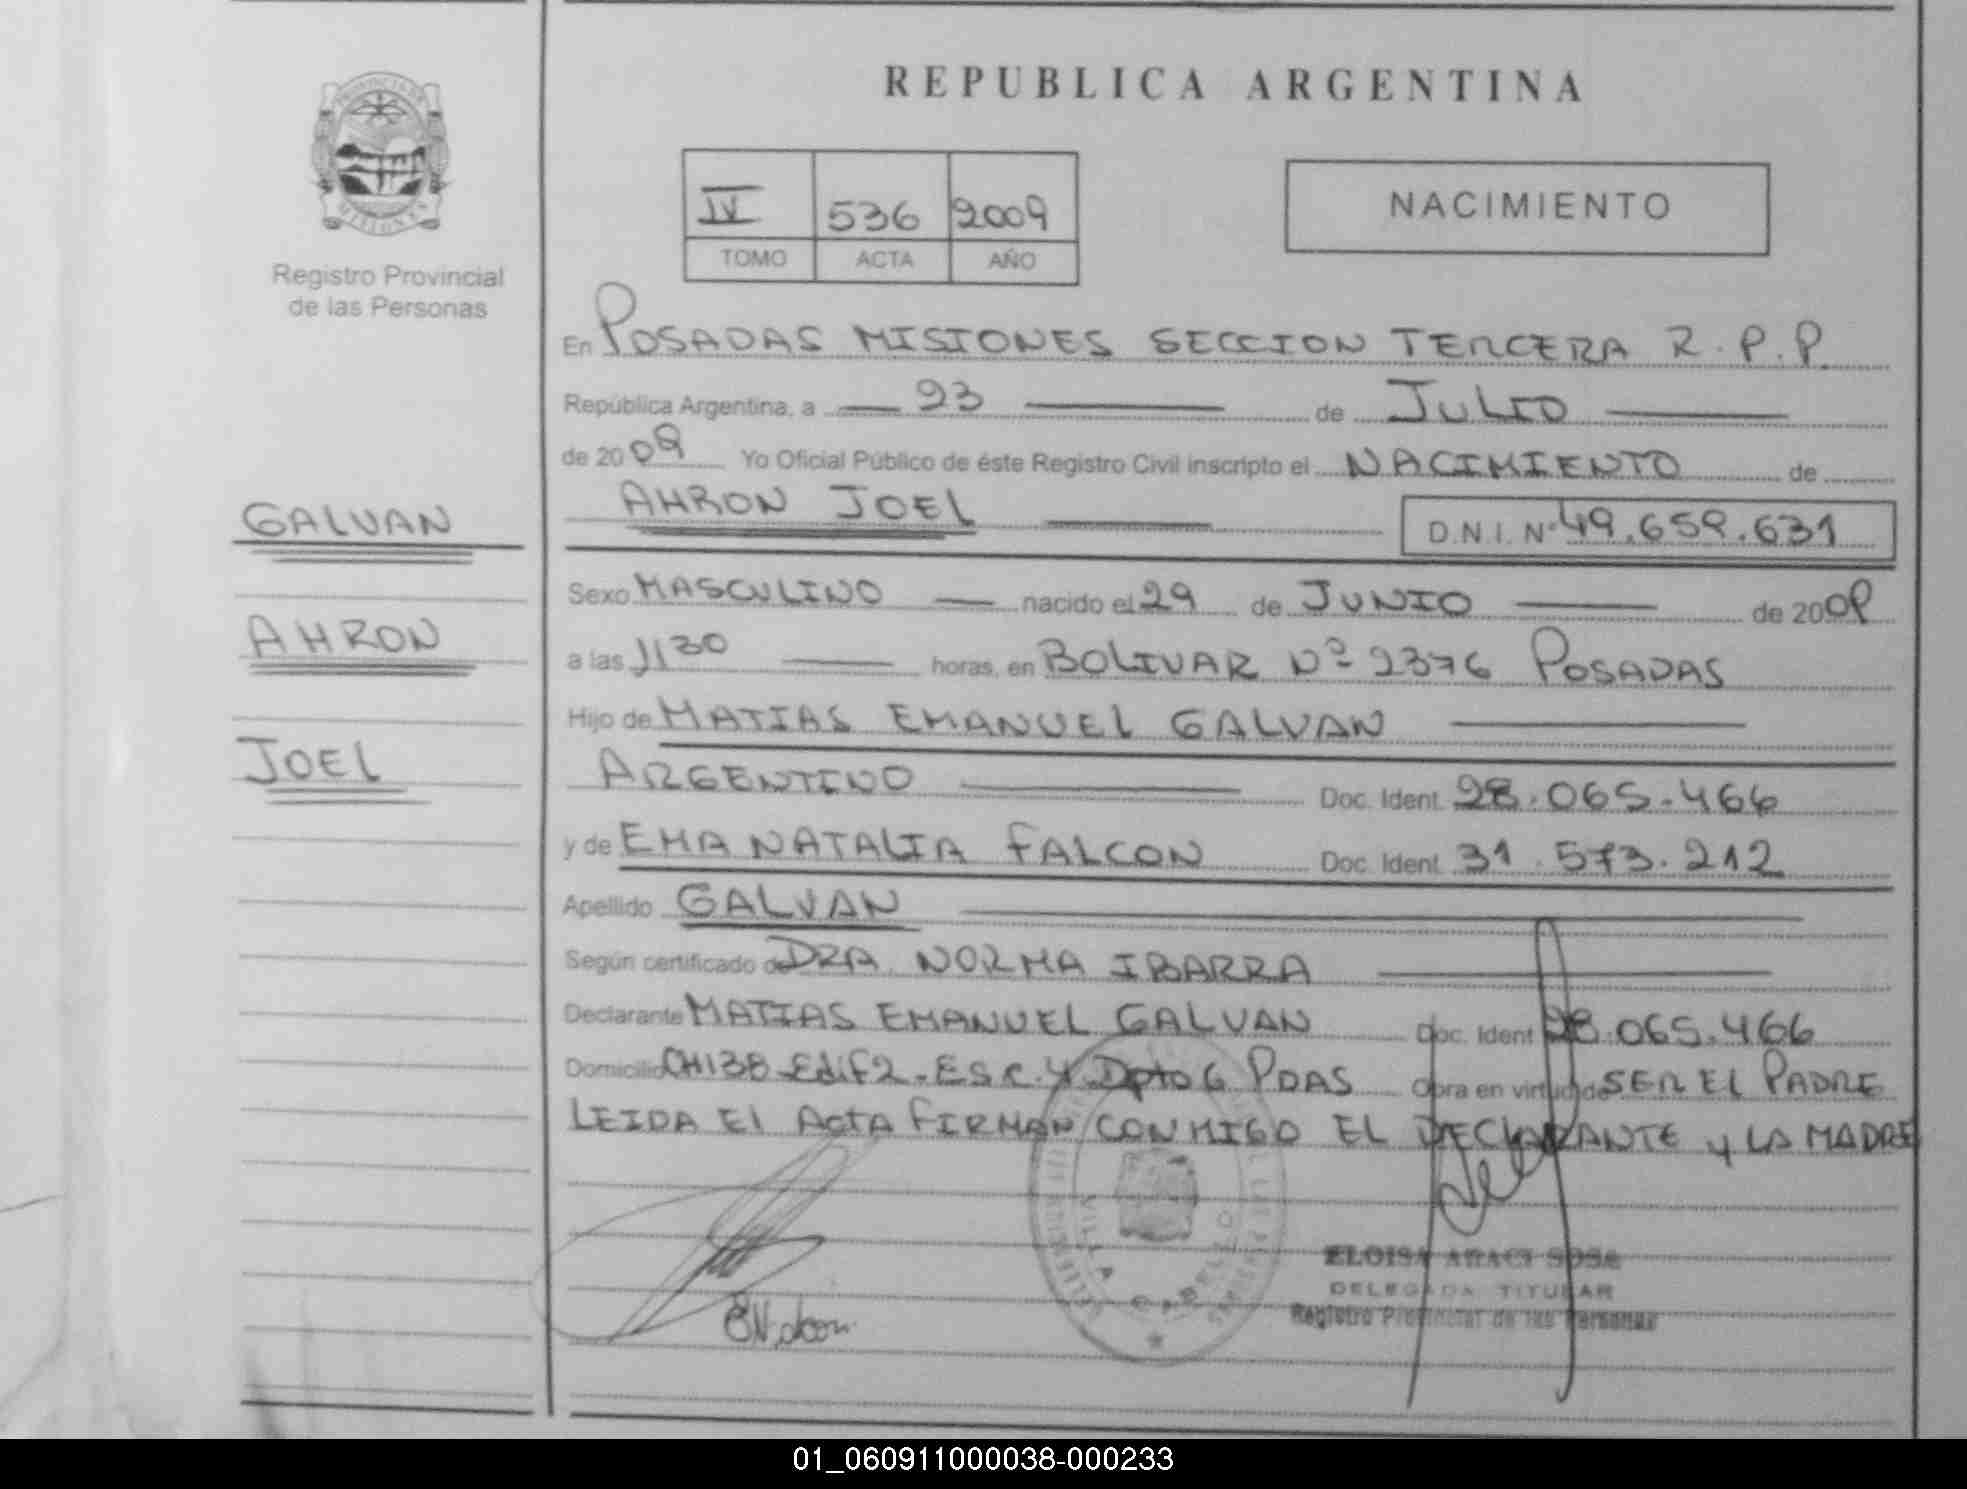 REPUBLICA ARGENTINA
PROVINCIA DE MISIONES
Registro Provincial
de las Personas
IV 536 2009
TOMO ACTA AÑO
NACIMIENTO
En POSADAS MISIONES SECCION TERCERA R.P.P.
República Argentina, a 23 de JULIO
de 2009 Yo Oficial Público de éste Registro Civil inscripto el NACIMIENTO de
AHRON JOEL D.N.I. Nº 49.659.631
GALVAN
AHRON
JOEL
Sexo MASCULINO nacido el 29 de JUNIO de 2009
a las 1130 horas, en BOLIVAR Nº 2376 POSADAS
Hijo de MATIAS EMANUEL GALVAN
ARGENTINO Doc. Ident. 28.065.466
y de EMA NATALIA FALCON Doc. Ident. 31.573.212
Apellido GALVAN
Según certificado de DRA. NORMA IBARRA
Declarante MATIAS EMANUEL GALVAN Doc. Ident 28.065.466
Domicilio CH138 Edif2. Esc. 4 Dpto 6 PDAS Obra en virtud de SER EL PADRE
LEIDA El ActA FIRMAN CONMIGO EL DECLARANTE y LA MADRE
VILLA CABELLO
ELOISA ARACI SOSA
DELEGADA TITULAR
Registro Provincial de las Personas
01_060911000038-000233